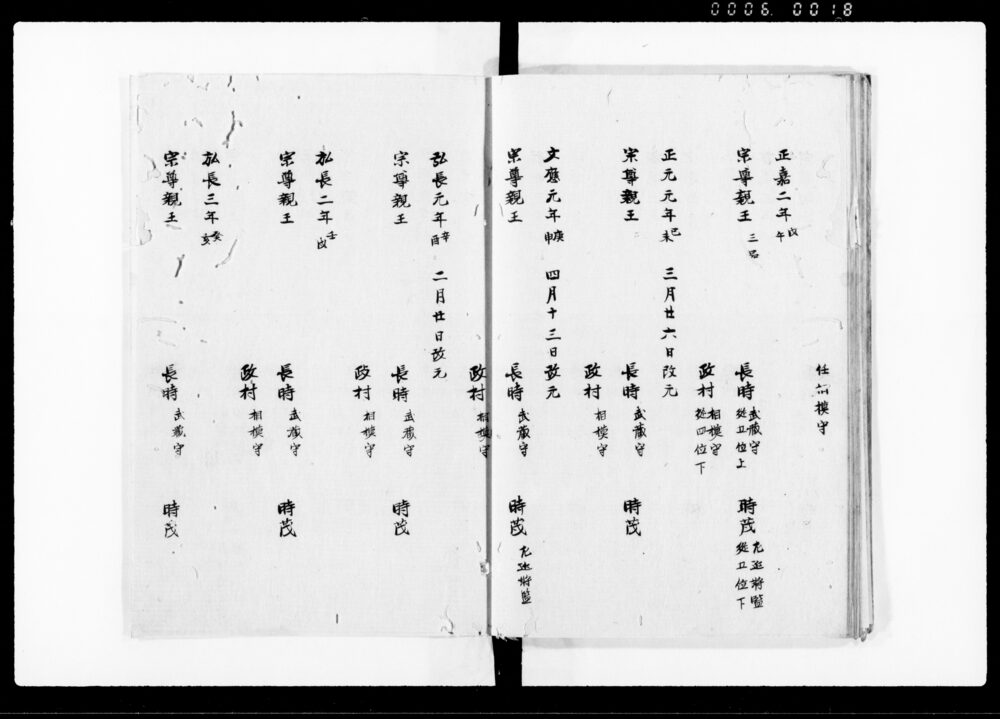 0006. 0018
任相模守
正嘉二年戊午
宗尊親王三品 長時武蔵守従五位上 時茂左近将監従五位下
政村相模守従四位下
正元元年己未 三月廿六日改元
宗尊親王 長時武蔵守 時茂
政村相模守
文應元年庚申 四月十三日改元
宗尊親王 長時武蔵守 時茂左近将監
政村相模守
弘長元年辛酉 二月廿日改元
宗尊親王 長時武蔵守 時茂
政村相模守
弘長二年壬戌
宗尊親王 長時武蔵守 時茂
政村相模守
弘長三年癸亥
宗尊親王 長時武蔵守 時茂